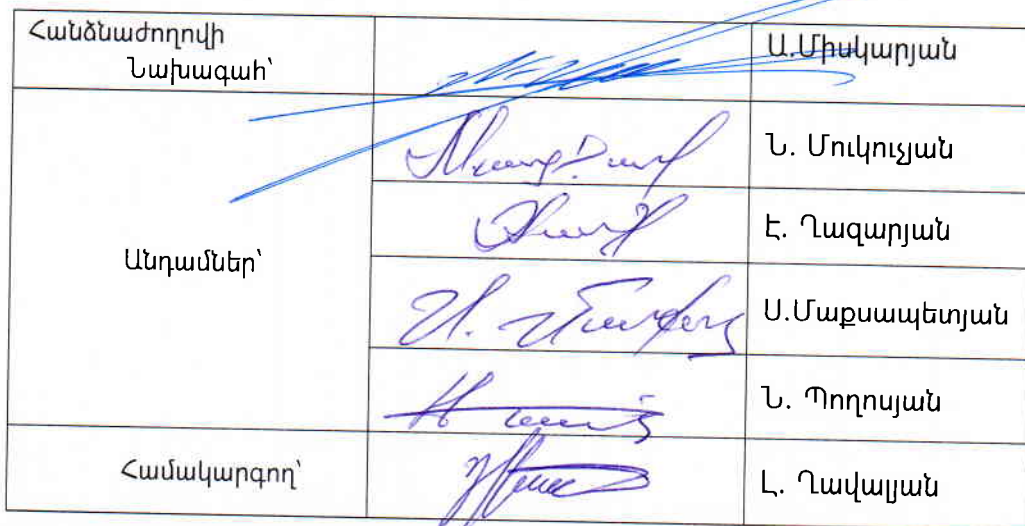 Հանձնաժողովի
Նախագահ՝
Ա.Միսկարյան
Անդամներ՝
Ն. Մուկուչյան
Է. Ղազարյան
Ս.Մաքսապետյան
Ն. Պողոսյան
Համակարգող՝
Լ. Ղավալյան